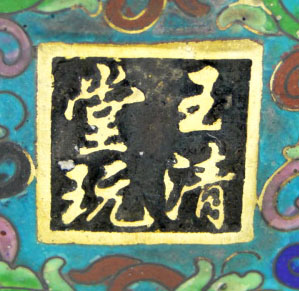 王清
堂玩